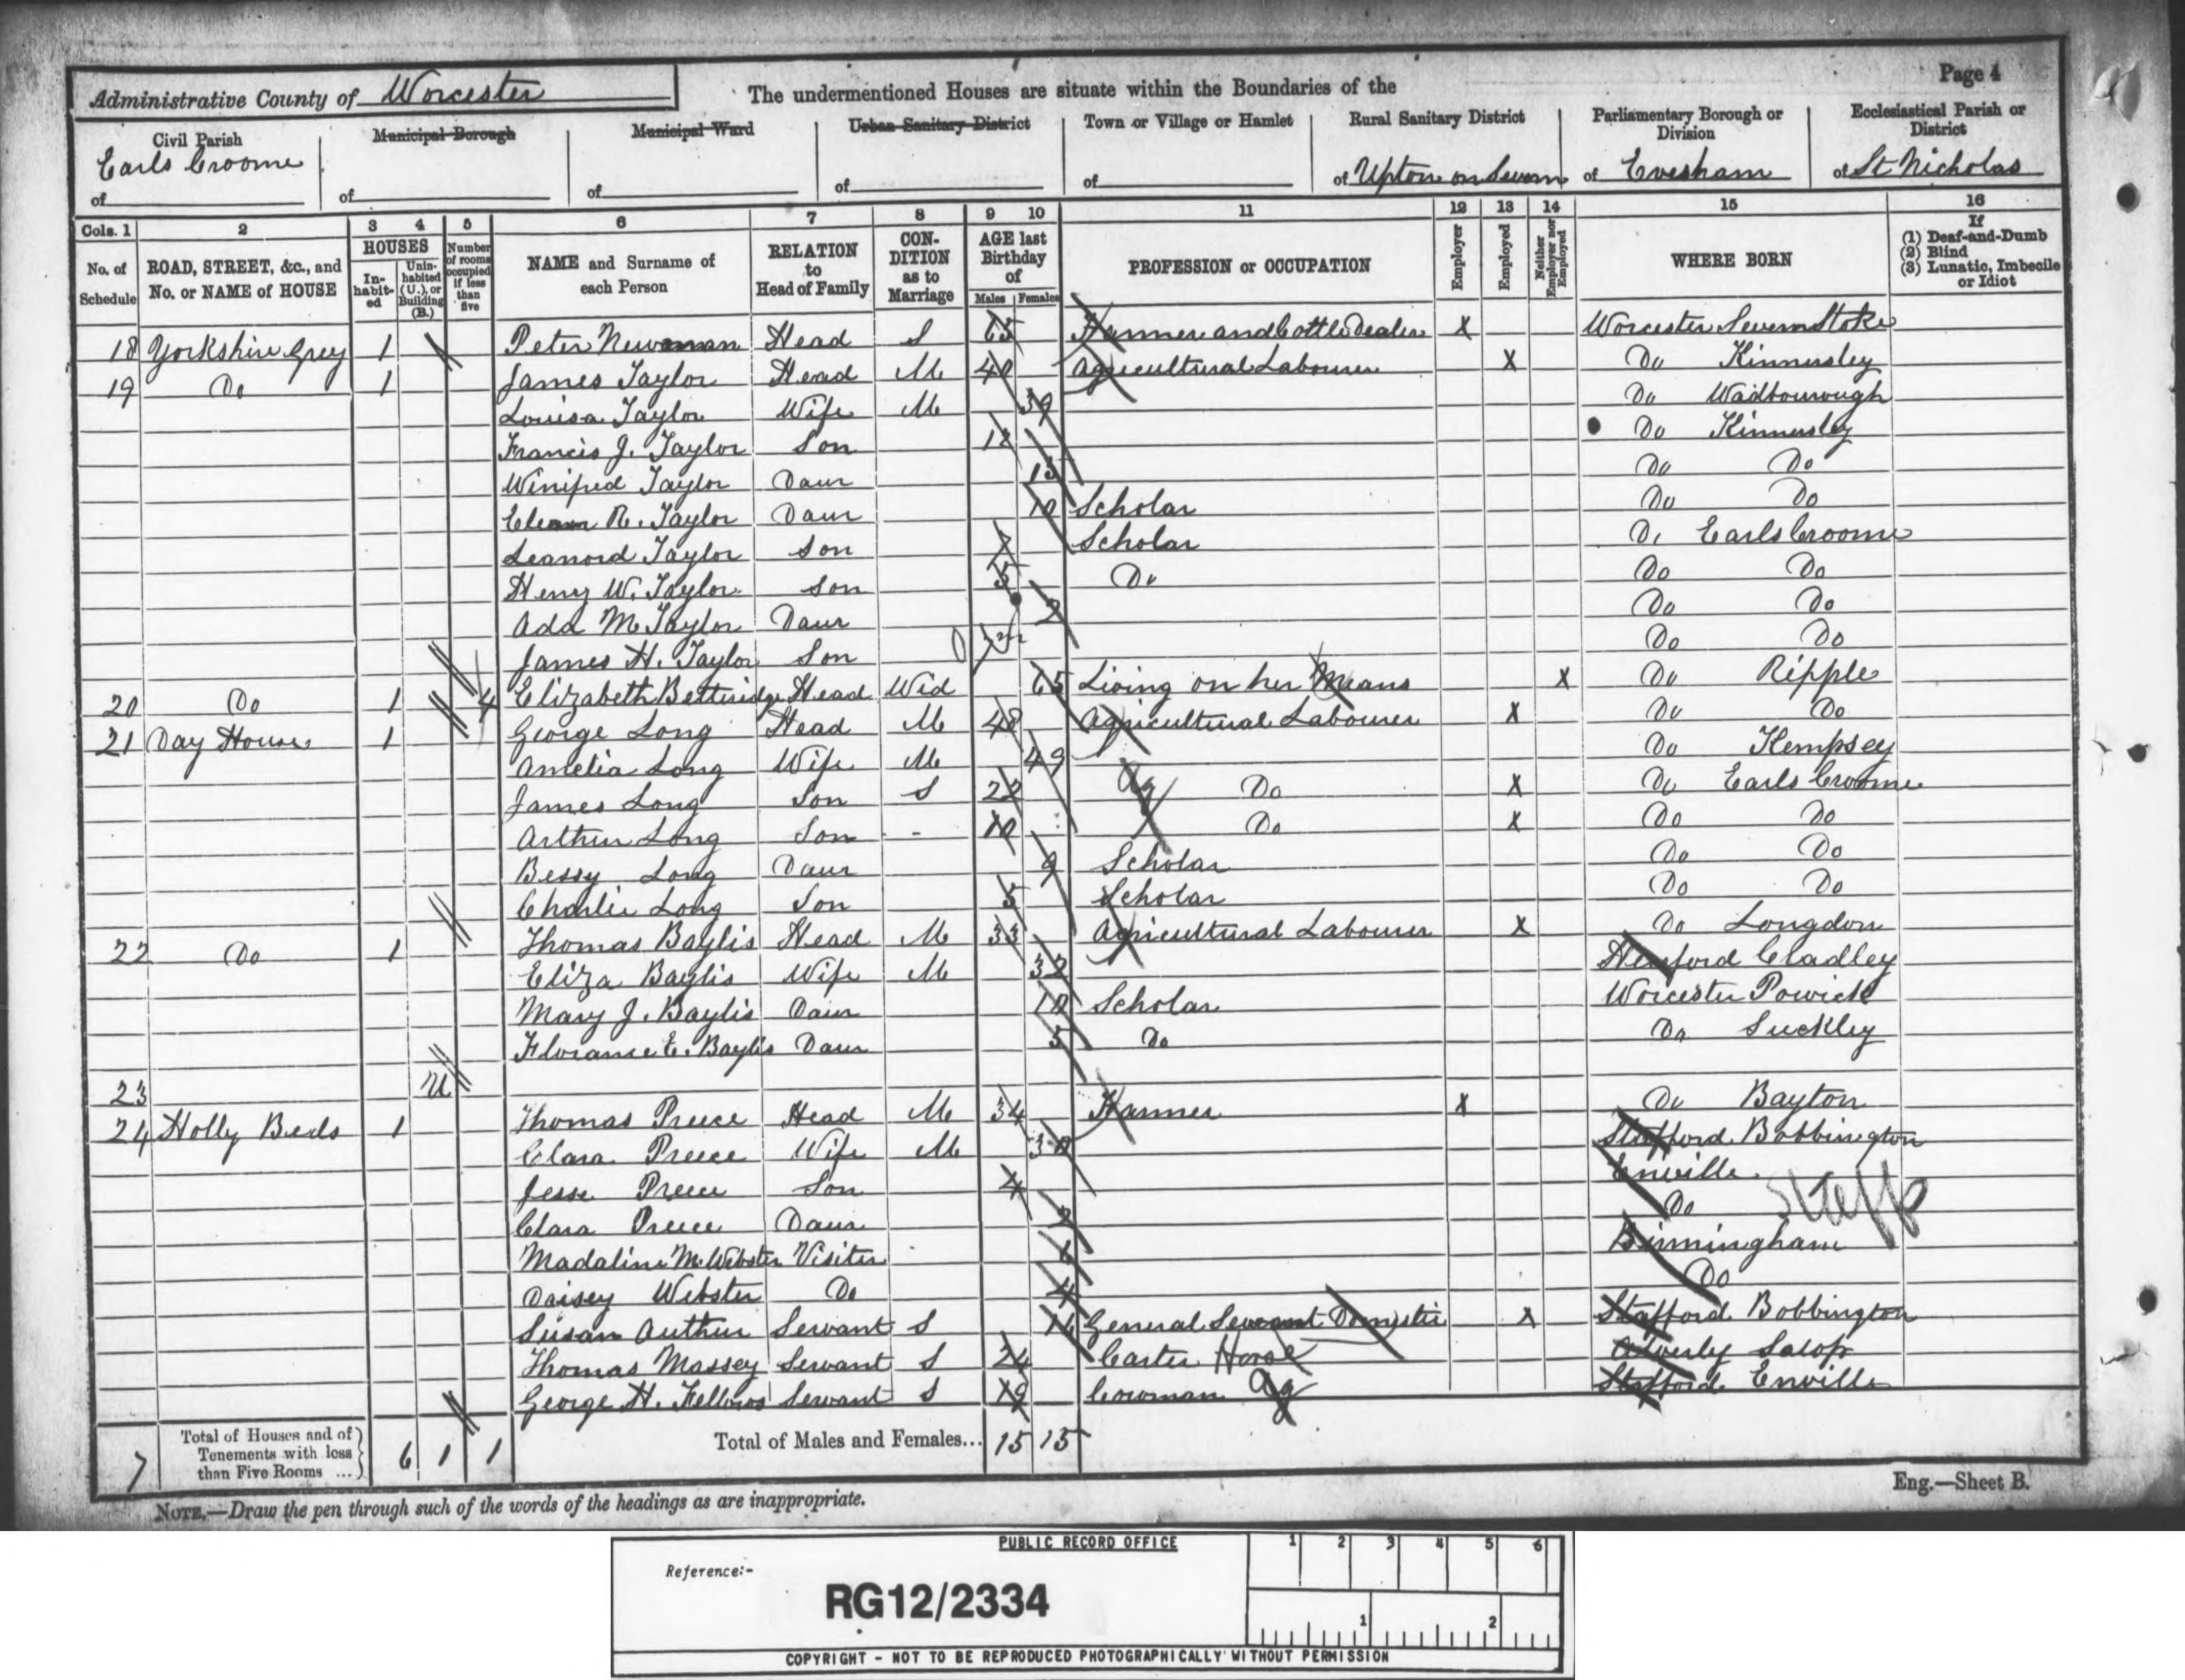 Page 4
Administrative County of Worcester
The undermentioned Houses are situate within the Boundaries of the
Civil Parish of Earls Croome
Municipal Borough of
Municipal Ward of
Urban Sanitary District of
Town or Village or Hamlet of
Rural Sanitary District of Upton on Severn
Parliamentary Borough or Division of Evesham
Ecclesiastical Parish or District of St Nicholas
Cols. 1 2 3 4 5 6 7 8 9 10 11 12 13 14 15 16
No. of Schedule
ROAD, STREET, &c., and No. or NAME of HOUSE
HOUSES
In-habit-ed
Unin-habited (U.), or Building (B.)
Number of rooms occupied if less than five
NAME and Surname of each Person
RELATION to Head of Family
CON-DITION as to Marriage
AGE last Birthday of
Males Females
PROFESSION or OCCUPATION
Employer
Employed
Neither Employer nor Employed
WHERE BORN
If (1) Deaf-and-Dumb (2) Blind (3) Lunatic, Imbecile or Idiot
18 Yorkshire Grey 1 Peter Newman Head S 65 Farmer and Cattle Dealer X Worcester Severn Stoke
19 Do 1 James Taylor Head M 40 Agricultural Labourer X Do Kinnersley
Louisa Taylor Wife M 39 Do Wadbourough
Francis J. Taylor Son Do Kinnersley
Winifred Taylor Daur 13 Do Do
R. Taylor Daur 10 Scholar Do Do
Leanord Taylor Son 7 Scholar Do Earls Croome
Henry W. Taylor Son 5 Do Do Do
Ada M Taylor Daur 2 Do Do
James H. Taylor Son Do Do
20 Do 1 4 Elizabeth Betteridge Head Wid 65 Living on her Means X Do Ripple
21 Day House 1 George Long Head M 48 Agricultural Labourer X Do Do
Amelia Long Wife M 49 Do Kempsey
James Long Son S 22 Ag Do X Do Earls Croome
Arthur Long Son - Do X Do Do
Bessy Long Daur 9 Scholar Do Do
Charlie Long Son 5 Scholar Do Do
22 Do 1 Thomas Baylis Head M 33 Agricultural Labourer X Do Longdon
Eliza Baylis Wife M 32 Hereford Cradley
Mary J. Baylis Daur 10 Scholar Worcester Powick
Florance E. Baylis Daur 5 Do Do Suckley
23 U
24 Holly Beds 1 Thomas Preece Head M 34 Farmer X Do Bayton
Clara Preece Wife M 30 Stafford Bobbington
Jesse Preece Son 4 Enville
Clara Preece Daur 2 Do Staff
Madaline M. Webster Visiter 6 Birmingham
Daisey Webster Do 4 Do
Susan Arthur Servant S 16 General Servant Domestic X Stafford Bobbington
Thomas Massey Servant S 24 Carter Horse Alverly Salop
George H. Fellows Servant S 19 Cowman Ag Stafford Enville
7 Total of Houses and of Tenements with less than Five Rooms ... 6 1 1
Total of Males and Females... 15 15
Eng.—Sheet B.
NOTE.—Draw the pen through such of the words of the headings as are inappropriate.
PUBLIC RECORD OFFICE
1 2 3 4 5 6
Reference:-
RG12/2334
1 2
COPYRIGHT - NOT TO BE REPRODUCED PHOTOGRAPHICALLY WITHOUT PERMISSION